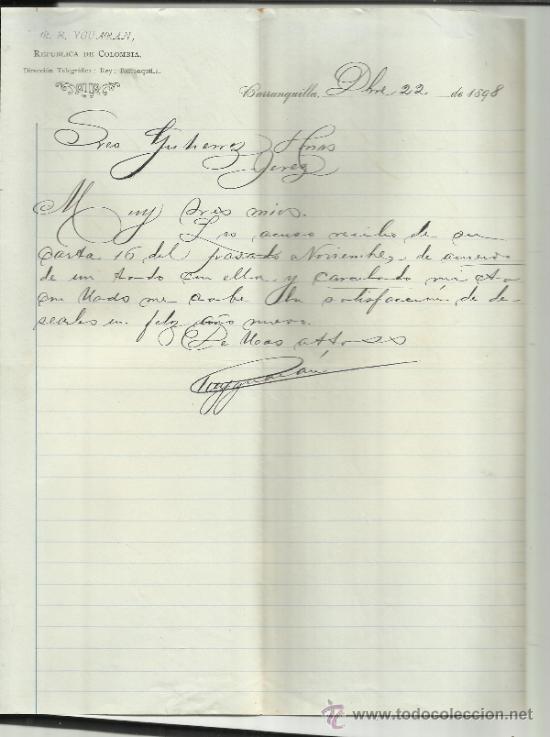 R. R. YGUARAN,
REPÚBLICA DE COLOMBIA.
Dirección Telegráfica: Rey: Barranquilla.
Barranquilla, Dbre 22 de 1898
Sres Gutierrez Hnos
Jerez
Muy Sres mios.
Les acuso recibo de su
carta 16 del pasado Noviembre, de acuerdo
de un todo con ella, y cancelando mi cta
con Uds me cabe la satisfacción de de-
searles un feliz año nuevo.
De Uds atto SS
www.todocoleccion.net